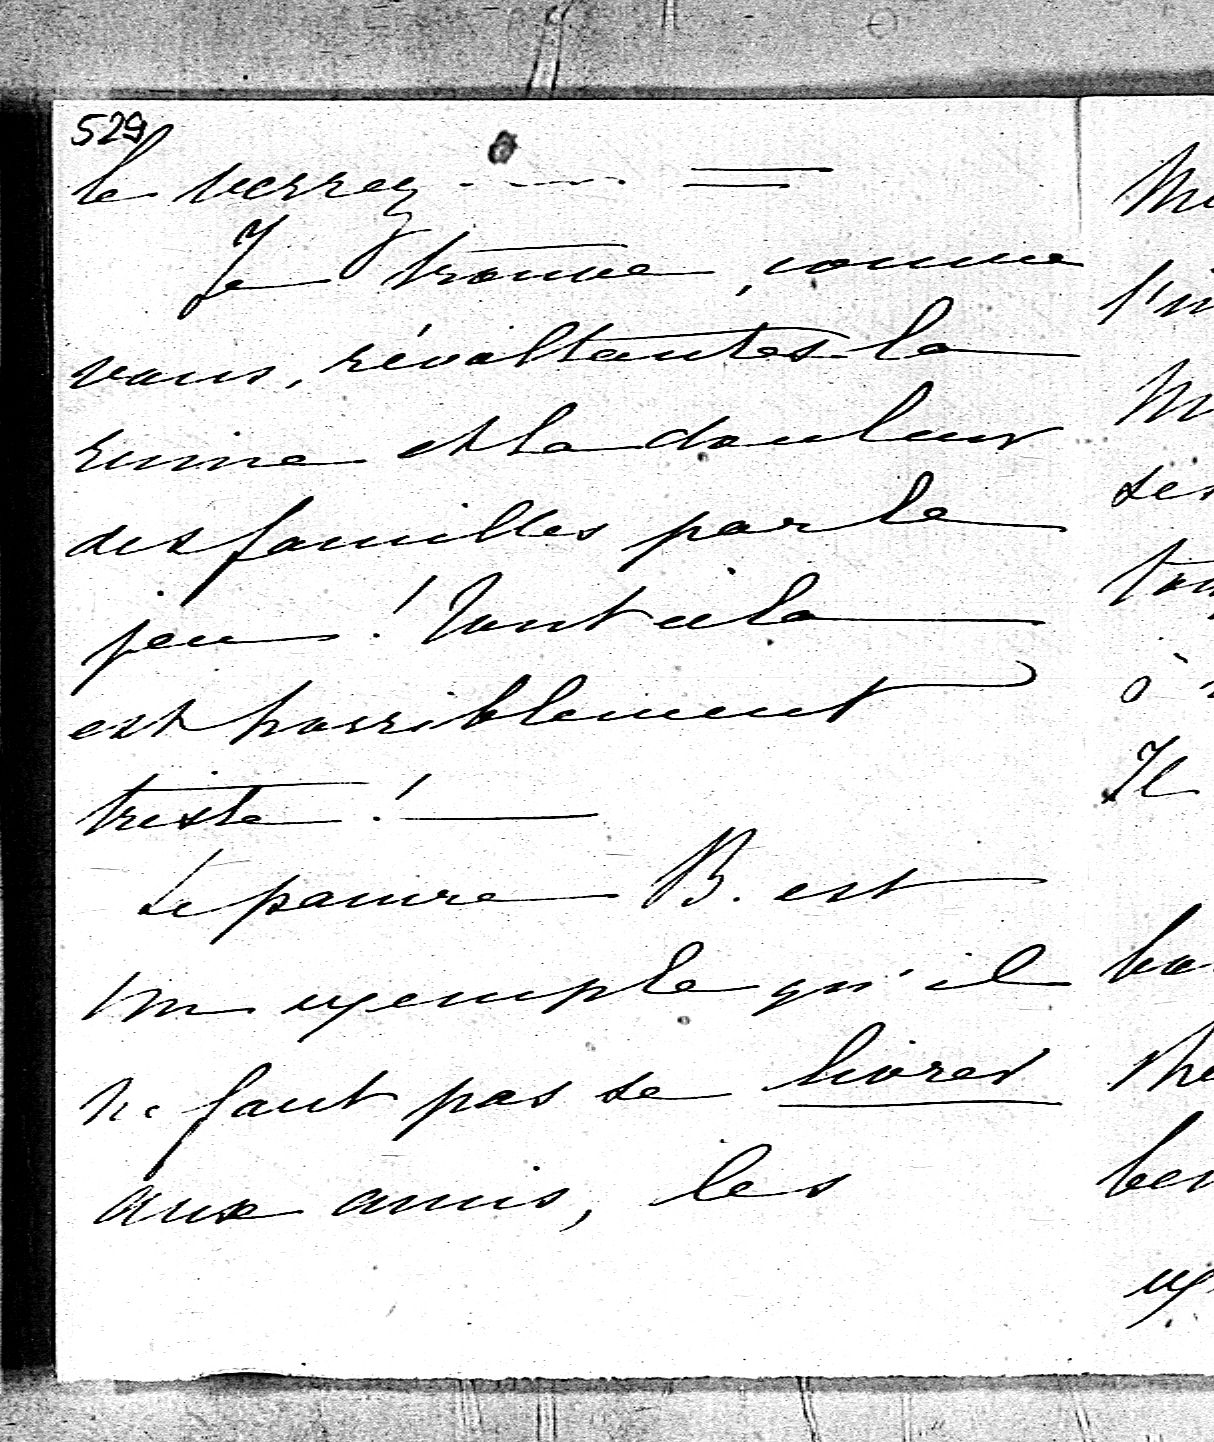 529
le verrez ..... =
Je trouve, comme
vous, révoltantes la
ruine et la douleur
des familles par le
jeu ! Tout cela
est horriblement
triste ! —
Le pauvre B. est
un exemple qu'il
ne faut pas se livrer
aux amis, les
l'in
à
Il